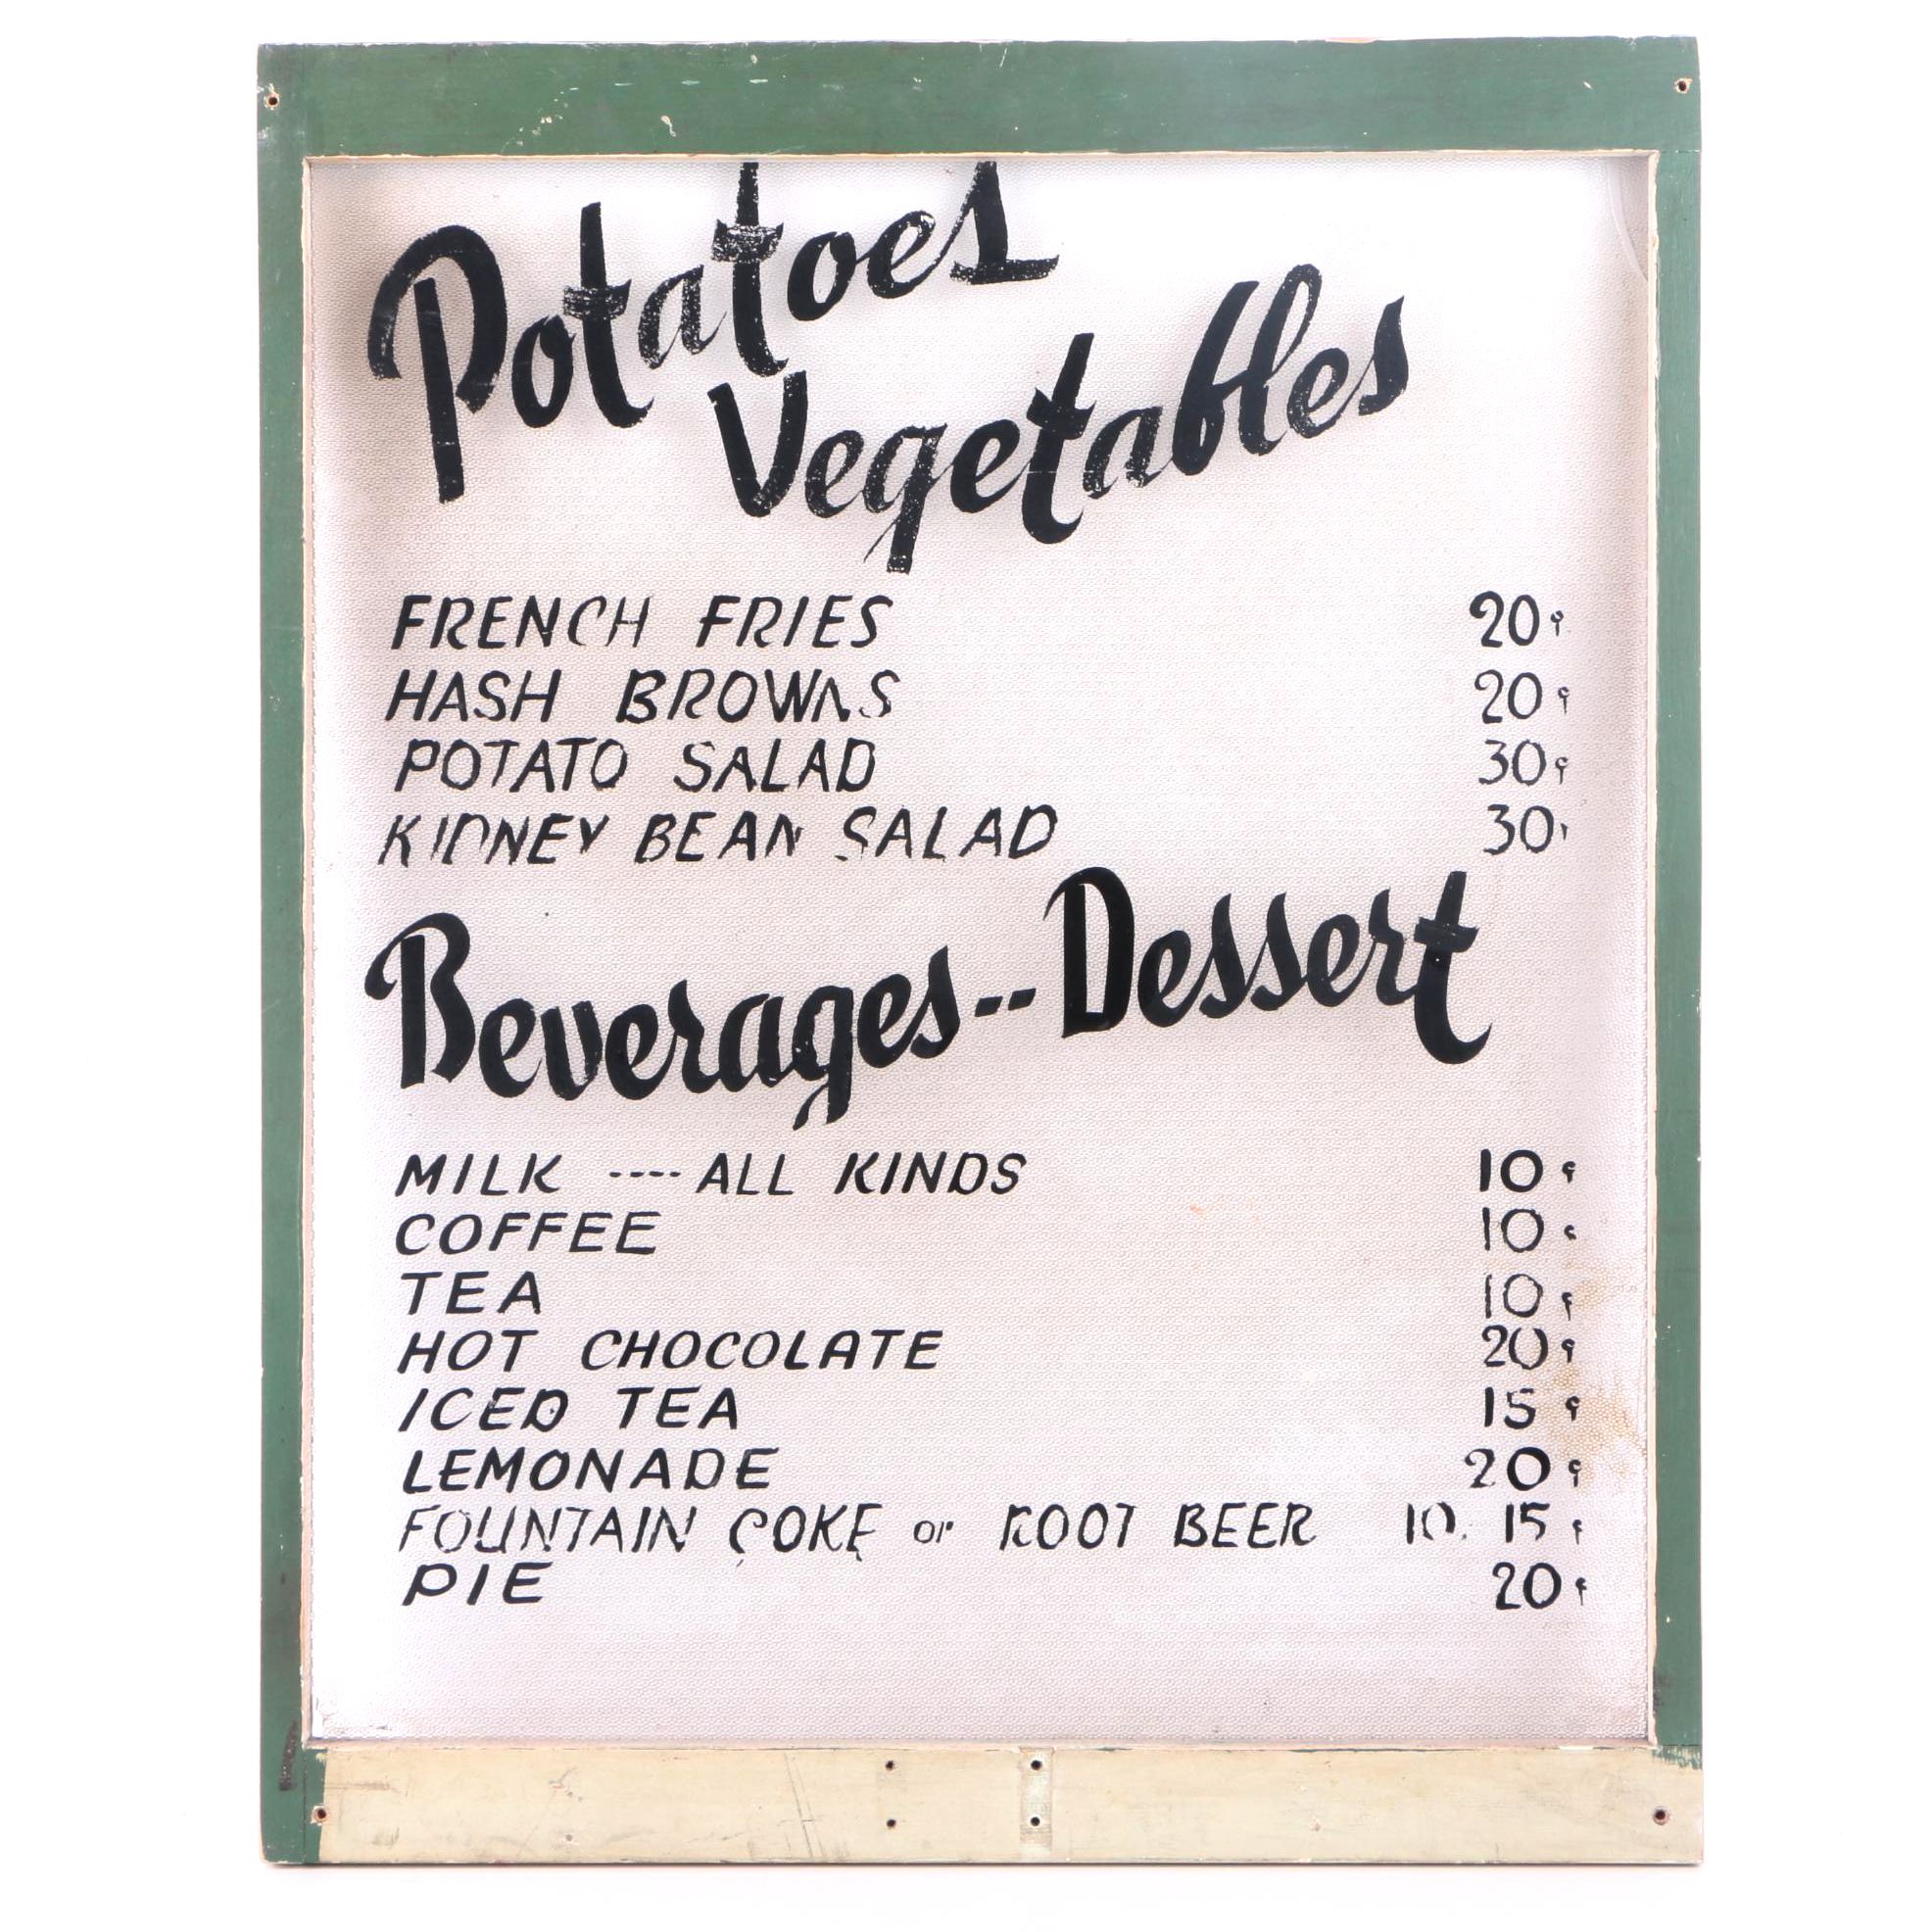 Potatoes
Vegetables
FRENCH FRIES 20¢
HASH BROWNS 20¢
POTATO SALAD 30¢
KIDNEY BEAN SALAD 30¢
Beverages--Dessert
MILK ----ALL KINDS 10¢
COFFEE 10¢
TEA 10¢
HOT CHOCOLATE 20¢
ICED TEA 15¢
LEMONADE 20¢
FOUNTAIN COKE or ROOT BEER 10. 15¢
PIE 20¢